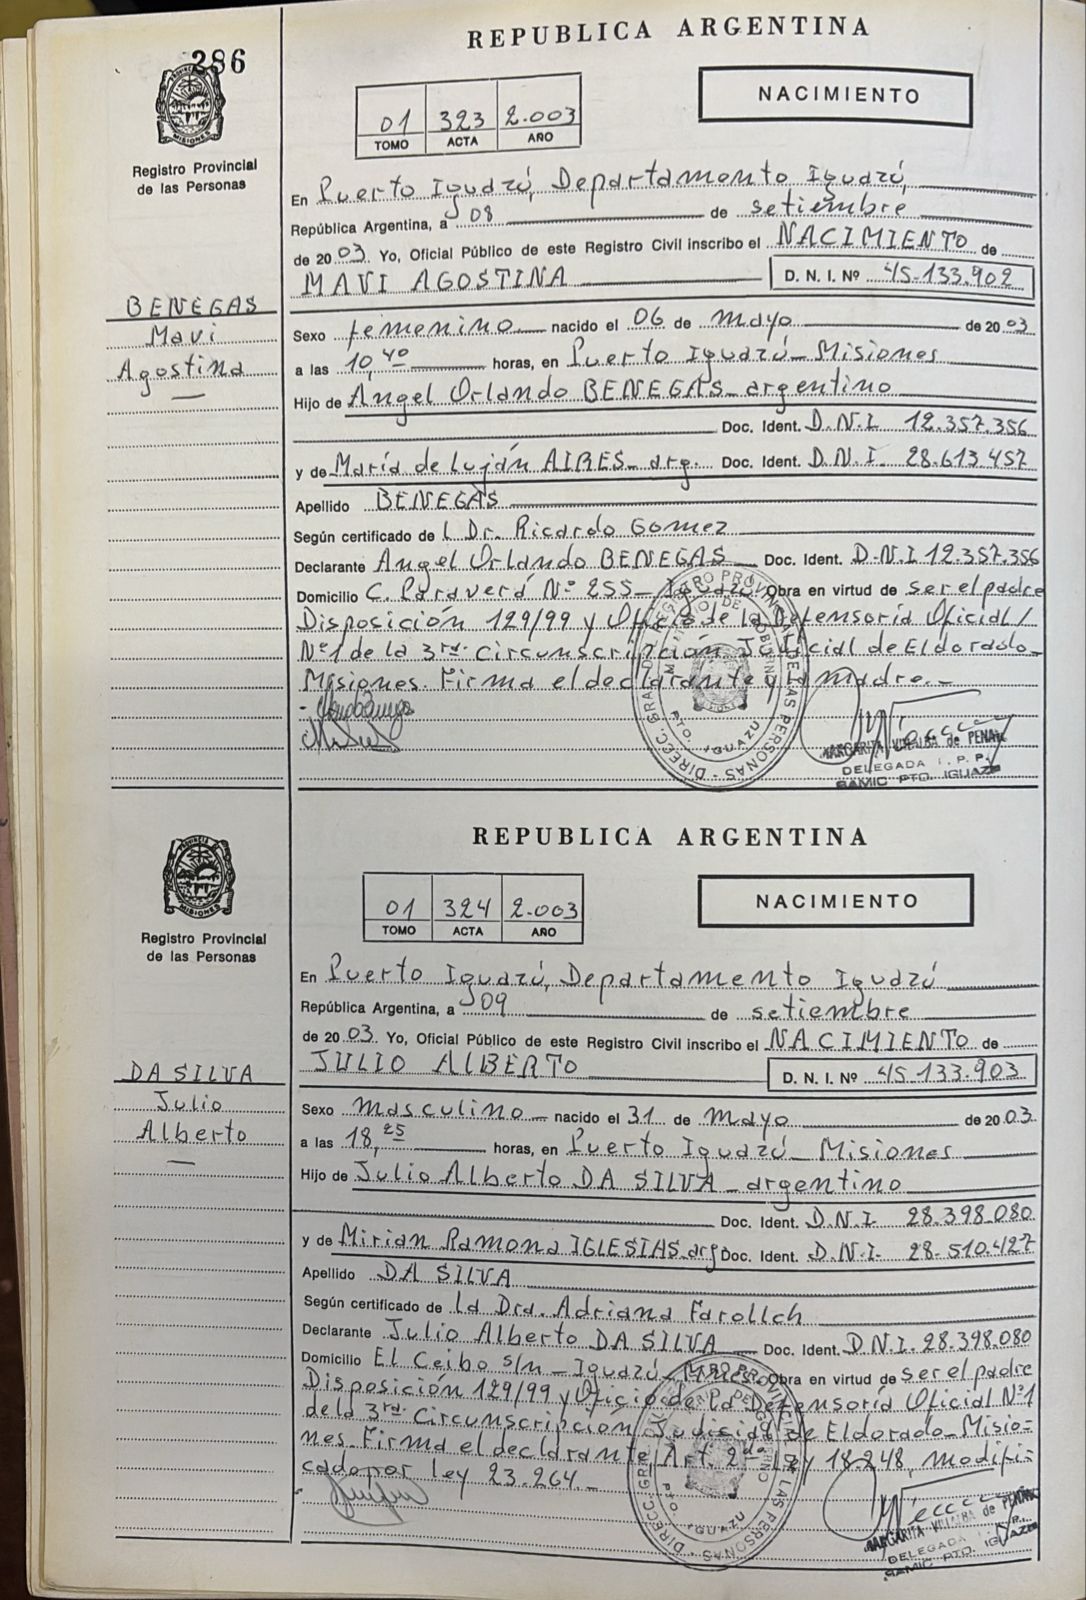 286
REPUBLICA ARGENTINA
MISIONES
Registro Provincial
de las Personas
01 323 2.003
TOMO ACTA AÑO
NACIMIENTO
BENEGAS
Mavi
Agostina
En Puerto Iguazú, Departamento Iguazú,
República Argentina, a 08 de setiembre
de 2003 Yo, Oficial Público de este Registro Civil inscribo el NACIMIENTO de
MAVI AGOSTINA D. N. I. Nº 45.133.902
Sexo femenino nacido el 06 de mayo de 2003
a las 10,40 horas, en Puerto Iguazú - Misiones
Hijo de Angel Orlando BENEGAS - argentino
Doc. Ident. D.N.I. 12.357.356
y de María de Luján AIRES - arg. Doc. Ident. D.N.I. 28.613.457
Apellido BENEGAS
Según certificado de l Dr. Ricardo Gomez
Declarante Angel Orlando BENEGAS Doc. Ident. D.N.I 12.357.356
Domicilio C. Paraverá Nº 255 - Iguazú. Obra en virtud de ser el padre
Disposición 129/99 y Oficio de la Defensoría Oficial /
Nº1 de la 3ra. Circunscripción Judicial de Eldorado -
Misiones. Firma el declarante y la madre. -
DIREC. GRAL. DEL REGISTRO PROVINCIAL DE LAS PERSONAS
PTO. IGUAZU
MARGARITA VILLALBA de PENA
DELEGADA I. P. P.
SAMIC PTO. IGUAZU
REPUBLICA ARGENTINA
PROVINCIA DE
MISIONES
Registro Provincial
de las Personas
01 324 2.003
TOMO ACTA AÑO
NACIMIENTO
DA SILVA
Julio
Alberto
En Puerto Iguazú, Departamento Iguazú
República Argentina, a 09 de setiembre
de 2003 Yo, Oficial Público de este Registro Civil inscribo el NACIMIENTO de
JULIO ALBERTO D. N. I. Nº 45.133.903
Sexo Masculino nacido el 31 de mayo de 2003.
a las 18,25 horas, en Puerto Iguazú - Misiones
Hijo de Julio Alberto DA SILVA - argentino
Doc. Ident. D.N.I. 28.398.080
y de Mirian Ramona IGLESIAS - arg Doc. Ident. D.N.I. 28.510.427
Apellido DA SILVA
Según certificado de la Dra. Adriana Farollch
Declarante Julio Alberto DA SILVA Doc. Ident. D.N.I. 28.398.080
Domicilio El Ceibo s/n - Iguazú - Mnes. Obra en virtud de ser el padre
Disposición 129/99 y Oficio de la Defensoría Oficial Nº1
de la 3ra. Circunscripción Judicial de Eldorado - Misio=
nes. Firma el declarante Art. 2do. Ley 18.248, modifi=
cado por ley 23.264. -
DIREC. GRAL. DEL REGISTRO PROVINCIAL DE LAS PERSONAS
PTO. IGUAZU
MARGARITA VILLALBA de PENA
DELEGADA I. P. P.
SAMIC PTO. IGUAZU